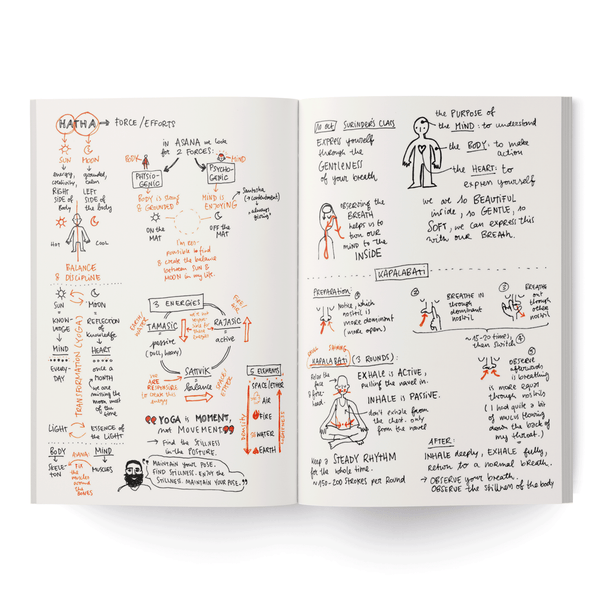 HATHA → FORCE/EFFORTS
SUN
MOON
energy,
creativity,
grounded,
calm
RIGHT
SIDE OF
Body
LEFT
SIDE of
the body
Hot
Cool
BALANCE
& DISCIPLINE
in ASANA we look
for 2 FORCES:
BODY
MIND
PHYSIO-
GENIC
PSYCHO-
GENIC
BODY is strong
& GROUNDED
MIND is
ENJOYING
Santosha
(→ contentment)
ON the
MAT
OFF the
MAT
I'm res-
ponsible to find
& create the balance
between SUN &
MOON in my life.
SUN
MOON
KNOW-
LEDGE
REFLECTION
of
knowledge
MIND
HEART
EVERY-
DAY
once a
MONTH
we are
missing the
moon most
of the
time
LIGHT
ESSENCE of
the LIGHT
TRANSFORMATION (YOGA)
BODY
MIND
SKELE-
TON
ASANA:
Put
the
muscles
around
the
BONES
MUSCLES
3 ENERGIES
TAMASIC
passive
(dull, heavy)
RAJASIC
active
SATTVIK
balance
we
ARE
RESPONSIBLE
to create this
energy
5 ELEMENTS
SPACE/ETHER
AIR
FIRE
WATER
EARTH
DENSITY
"YOGA is MOMENT,
not MOVEMENT"
→ Find the STILLNESS
in the POSTURE.
"MAINTAIN YOUR POSE.
FIND STILLNESS. ENJOY THE
STILLNESS. MAINTAIN YOUR POSE."
SURINDER'S CLASS
EXPRESS yourself
through the
GENTLENESS
of your breath
the PURPOSE of
the MIND: to understand
the BODY: to make
action
the HEART: to
express yourself
OBSERVING the
BREATH
helps us to
turn OUR
MIND to the
INSIDE
we are so BEAUTIFUL
inside, so GENTLE, so
SOFT, we can express this
with our BREATH.
KAPALABATI
PREPARATION:
①
Notice, which
nostril is
more dominant
(more open.)
②
BREATHE IN
through
dominant
nostril
③
BREATHE
out
through
other
nostril
~15-20 times,
then switch
④
KAPALABATI (3 ROUNDS):
EXHALE is ACTIVE,
pulling the navel in.
INHALE is PASSIVE.
don't exhale from
the chest, only
from the navel
Keep a STEADY RHYTHM
for the whole time.
~150-200 STROKES per Round
OBSERVE
afterwards
is breathing
is more equal
through nostrils
(I had quite a bit
of much flowing
down the back of
my throat.)
AFTER:
INHALE deeply, EXHALE fully,
return to a normal breath.
→ OBSERVE your breath.
OBSERVE the stillness of the body